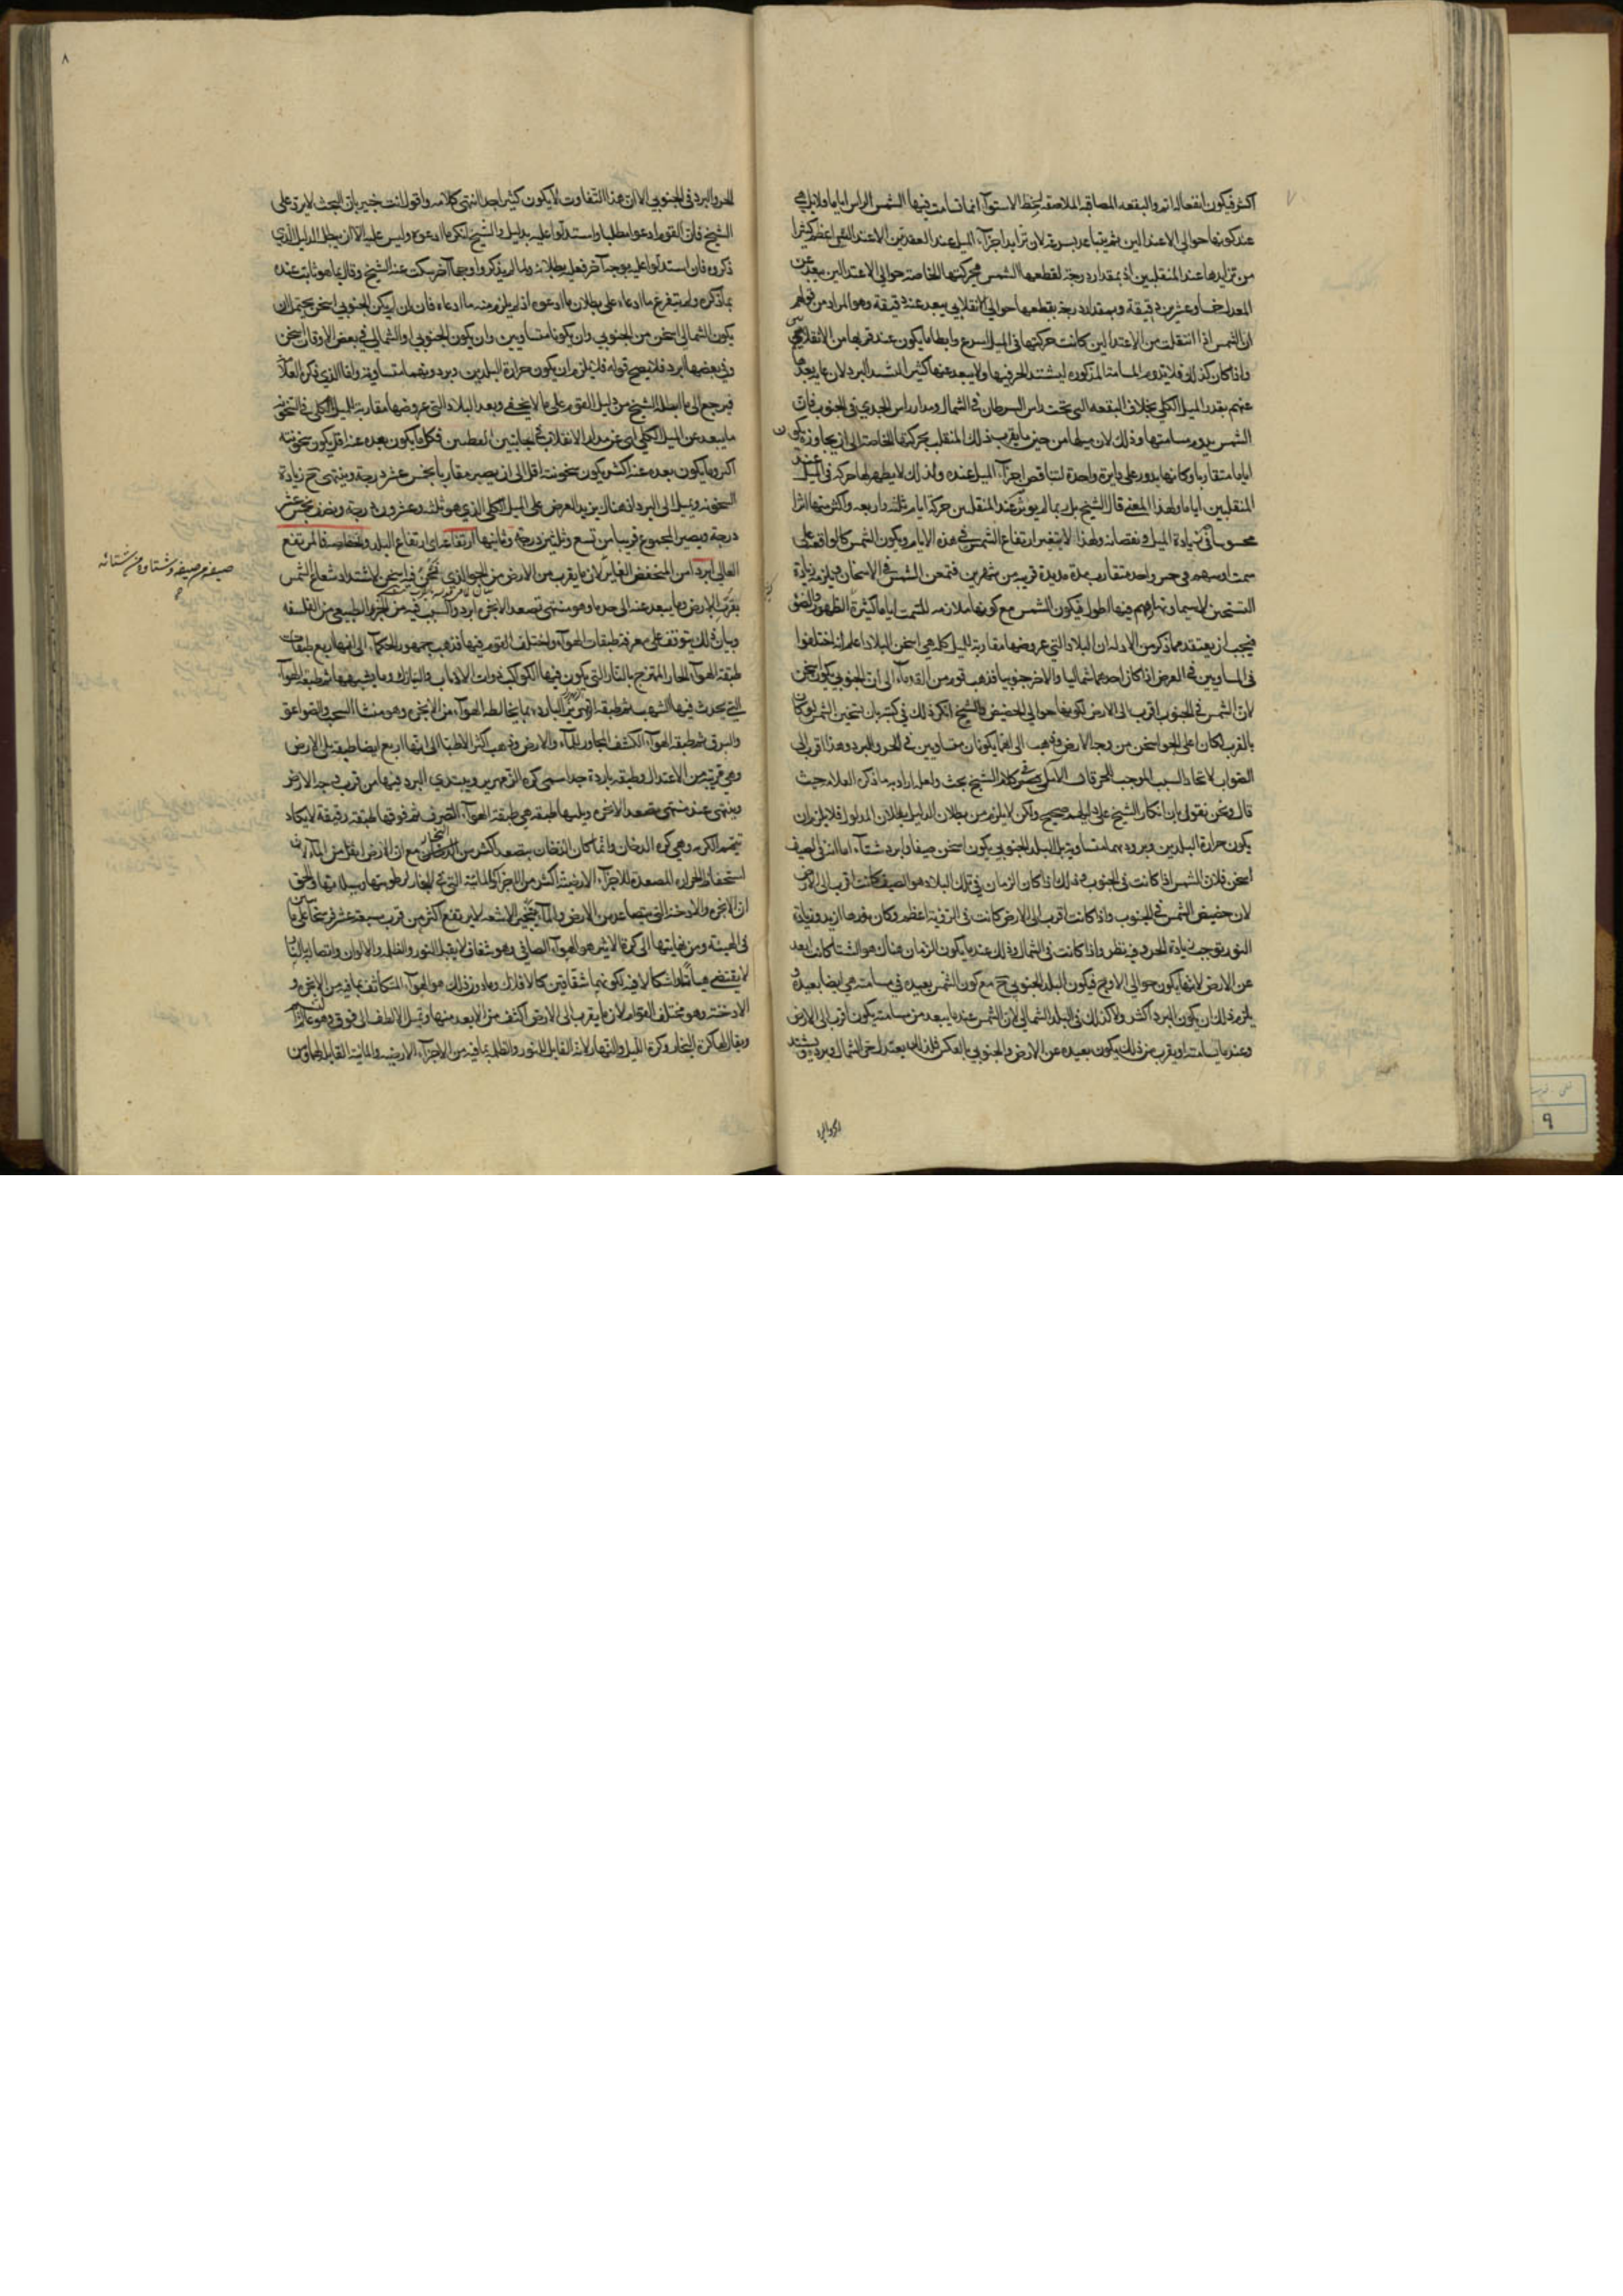 ٧
اكثر فيكون انفعالها اشد والبقعه المصاقبة الملاصقة لخط الاستوآء انما تسامت فيها الشمس الراس اياما قلايل هي
عند كونها حوالي الاعتدالين ثم يتباعد بسرعة لان تزايد اجزآء الميل عند العقدتين الاعتدالين اعظم كثيرا
من تزايدها عند المنقلبين اذ بمقدار درجة تقطعها الشمس بحركتها الخاصة حوالي الاعتدالين يبعد عن
المعدل خمسا وعشرين دقيقة وبمقدار درجة يقطعها حوالي الانقلابي يبعد عنه دقيقة وهو المراد من قولهم
ان الشمس اذا انتقلت من الاعتدالين كانت حركتها في الميل اسرع وابطأ ما يكون عند قربها من الانقلابين
واذا كان كذلك فلا يدوم المسامتة المذكورة ليشتد الحر فيها ولا يبعد عنها كثيرا ليشتد البرد لان غاية بعدها
عنهم بقدر الميل الكلي بخلاف البقعه التي تحت راس السرطان في الشمال ومدار راس الجدي في الجنوب فان
الشمس يدوم مسامتتها وذلك لان ميلها من حين ما يقرب ذلك المنقلب بحركتها الخاصة الى ان يجاوزه يكون
اياما متقاربا وكانها يدور على دايرة واحدة لتناقص اجزآء الميل عنده ولذلك لا يظهر لها حركة في الميل عند
المنقلبين اياما ولهذا المعنى قال الشيخ بل ربما لم يوثر عند المنقلبين حركة ايام ثلثة واربعه واكثر منها اثرا
محسوسا في زيادة الميل ونقصانه ولهذا لا يتغير ارتفاع الشمس في هذه الايام ويكون الشمس كالواقفة على
سمت اوسهم في حيز واحد متقارب مدة مديدة قريبه من شهرين فتمعن الشمس في الاسخان ويلزمه زيادة
التسخين لا سيما ونهارهم فيها اطول فيكون الشمس مع كونها ملازمه للسمت اياما كثيرة الظهور والضوء
فيجب ان يعتقد مما ذكر من الادله ان البلاد التي عروضها مقاربة للميل كله هي اسخن البلاد اعلم انه اختلفوا
في المساويين في العرض اذا كان احدهما شماليا والاخر جنوبيا فذهب قوم من القدمآء الى ان الجنوبي يكون اسخن
لان الشمس في الجنوب اقرب الى الارض لكونها حوالي الحضيض والشيخ انكر ذلك في كتبه بان تسخين الشمس لو كان
بالقرب لكان اعلى الجو اسخن من وجه الارض وذهب الى انهما يكونان متساويين في الحر والبرد وهذا اقرب الى
الصواب لاتحاد السبب الموجب للحر قال الآملي في كلام الشيخ بحث ولعل مراده ما ذكره العلامه حيث
قال ونحن نقول بان انكار الشيخ على دليلهم صحيح ولكن لا يلزم من بطلان الدليل بطلان المدلول فلا يلزم ان
يكون حرارة البلدين وبرودتهما متساوية بل البلد الجنوبي يكون اسخن صيفا وابرد شتآء اما انه في الصيف
اسخن فلان الشمس اذا كانت في الجنوب وذلك اذا كان الزمان في تلك البلاد هو الصيف كانت اقرب الى الارض
لان حضيض الشمس في الجنوب واذا كانت اقرب الى الارض كانت في الرؤية اعظم وكان نورها ازيد وزيادة
النور يوجب زيادة الحر وفيه نظر واذا كانت في الشمال وذلك عند ما يكون الزمان هناك هو الشتا كانت ابعد
عن الارض لانها يكون حوالي الاوج فيكون البلد الجنوبي ح مع كون الشمس بعيدة في مسامته هي ايضا بعيدة
يلزم ذلك ان يكون البرد اكثر ولا كذلك في البلد الشمالي لان الشمس عند ما يبعد من مسامته يكون اقرب الى الارض
وعند ما يسامته او يقرب من ذلك يكون بعيده عن الارض والجنوبي بالعكس فلذلك يعتدل حر الشمال وبرده ويشتد
٨
الحر والبرد في الجنوبي الا ان هذا التفاوت لا يكون كثيرا جدا انتهى كلامه واقول انت خبير بان البحث لا يرد على
الشيخ فان القوم ادعوا مطلبا واستدلوا عليه بدليل والشيخ انكر ما ادعوه وليس عليه الا ان يبطل الدليل الذي
ذكروه فان استدلوا عليه بوجه آخر فعليه بطلانه ولما لم يذكروا وجها آخر سكت عنه الشيخ وقال بما هو ثابت عنده
بما ذكره ولم يتفرغ ما ادعاه على بطلان ما ادعوه اذ لم يلزم منه ما ادعاه فان بان لم يكن الجنوبي اسخن يحتمل ان
يكون الشمالي اسخن من الجنوبي وان يكونا متساويين وان يكون الجنوبي او الشمالي في بعض الاوقات اسخن
وفي بعضها ابرد فلا يصح قوله فلا يلزم ان يكون حرارة البلدين وبرودتهما متساوية واما الذي ذكره العلامة
فيرجع الى ما ابطله الشيخ من دليل القوم على ما لا يخفى وبعد البلاد التي عروضها مقاربة للميل الكلي في السخونة
ما يبعد عن الميل الكلي اي عن مدار الانقلاب في الجانبين القطبين فكل ما يكون بعده عنه اقل يكون سخونته
اكثر وما يكون بعده عنه اكثر يكون سخونته اقل الى ان يصير مقاربا بخمس عشر درجة وينتهي ح زيادة
السخونه ويميل الى البرد اذ هناك يزيد العرض على الميل الكلي الذي هو ثلثه وعشرون درجة ونصف بخمس عشر
درجة ويصير المجموع قريبا من تسع وثلثين درجة وثانيها ارتفاعها اي ارتفاع البلد وانخفاضه فالمرتفع
العالي ابرد من المنخفض الغاير لان ما يقرب من الارض من الجو الذي نحن فيه اسخن لاشتداد شعاع الشمس
بقرب الارض وما يبعد عنه الى حد ما وهو منتهى تصعد الابخره ابرد والسبب فيه من الجزء الطبيعي من الفلسفه
وبيان ذلك يتوقف على معرفة طبقات الهوآء واختلف القوم فيها فذهب جمهور الحكمآء الى انها اربع طبقات
طبقة الهوآء الحار الممتزج بالنار التي يكون فيها الكواكب ذوات الاذناب والنيازك وما يشبهها ثم طبقة الهوآء
التي يحدث فيها الشهب ثم طبقة الزمهرير البارد بما يخالطه الهوآء من الابخره وهو منشأ السحب والصواعق
والبرق ثم طبقة الهوآء الكثيف المجاور للمآء والارض وذهب اكثر الاطبا الى انها اربع ايضا طبقة يلي الارض
وهي قريبة من الاعتدال وطبقة باردة جدا يسمى كرة الزمهرير ويبتدي البرد فيها من قرب وجه الارض
وينتهي عند منتهى تصعد الابخره ويليها طبقة هي طبقة الهوآء الصرف ثم فوقها طبقة رقيقة لا يكاد
يتميز الكره وهي كرة الدخان وانما كان الدخان يتصعد اكثر من البخار مع ان الارض اثقل من المآء لان
استحفاظ الحرارة المصعدة للاجزآء الارضية اكثر من الاجزآء المائية التي في البخار لرطوبتها وسيلانها والحق
ان الابخره والادخنة التي يتصاعد من الارض والمآء بتبخير الاشعه لا يرتفع اكثر من قرب سبعة عشر فرسخا على ما بين
في الهيئة ومن نهايتها الى كرة الاثير هو الهوآء الصافي وهو شفاف لا يقبل النور والظلمه والالوان واتصاله بالنار
لا يقتضي هيأتا واشكالا فيه لكونهما شفافين كالافلاك وما دون ذلك هو الهوآء المتكاثف بما فيه من الابخره و
الادخنه وهو مختلف القوام لان ما يقرب الى الارض اكثف من الابعد منها ويميل الالطف الى فوق وهو عالم النسيم
ويقال لها كرة البخار وكرة الليل والنهار لانه القابل للنور والظلمة بما فيه من الاجزآء الارضيه والمائية القابله لهما ومن